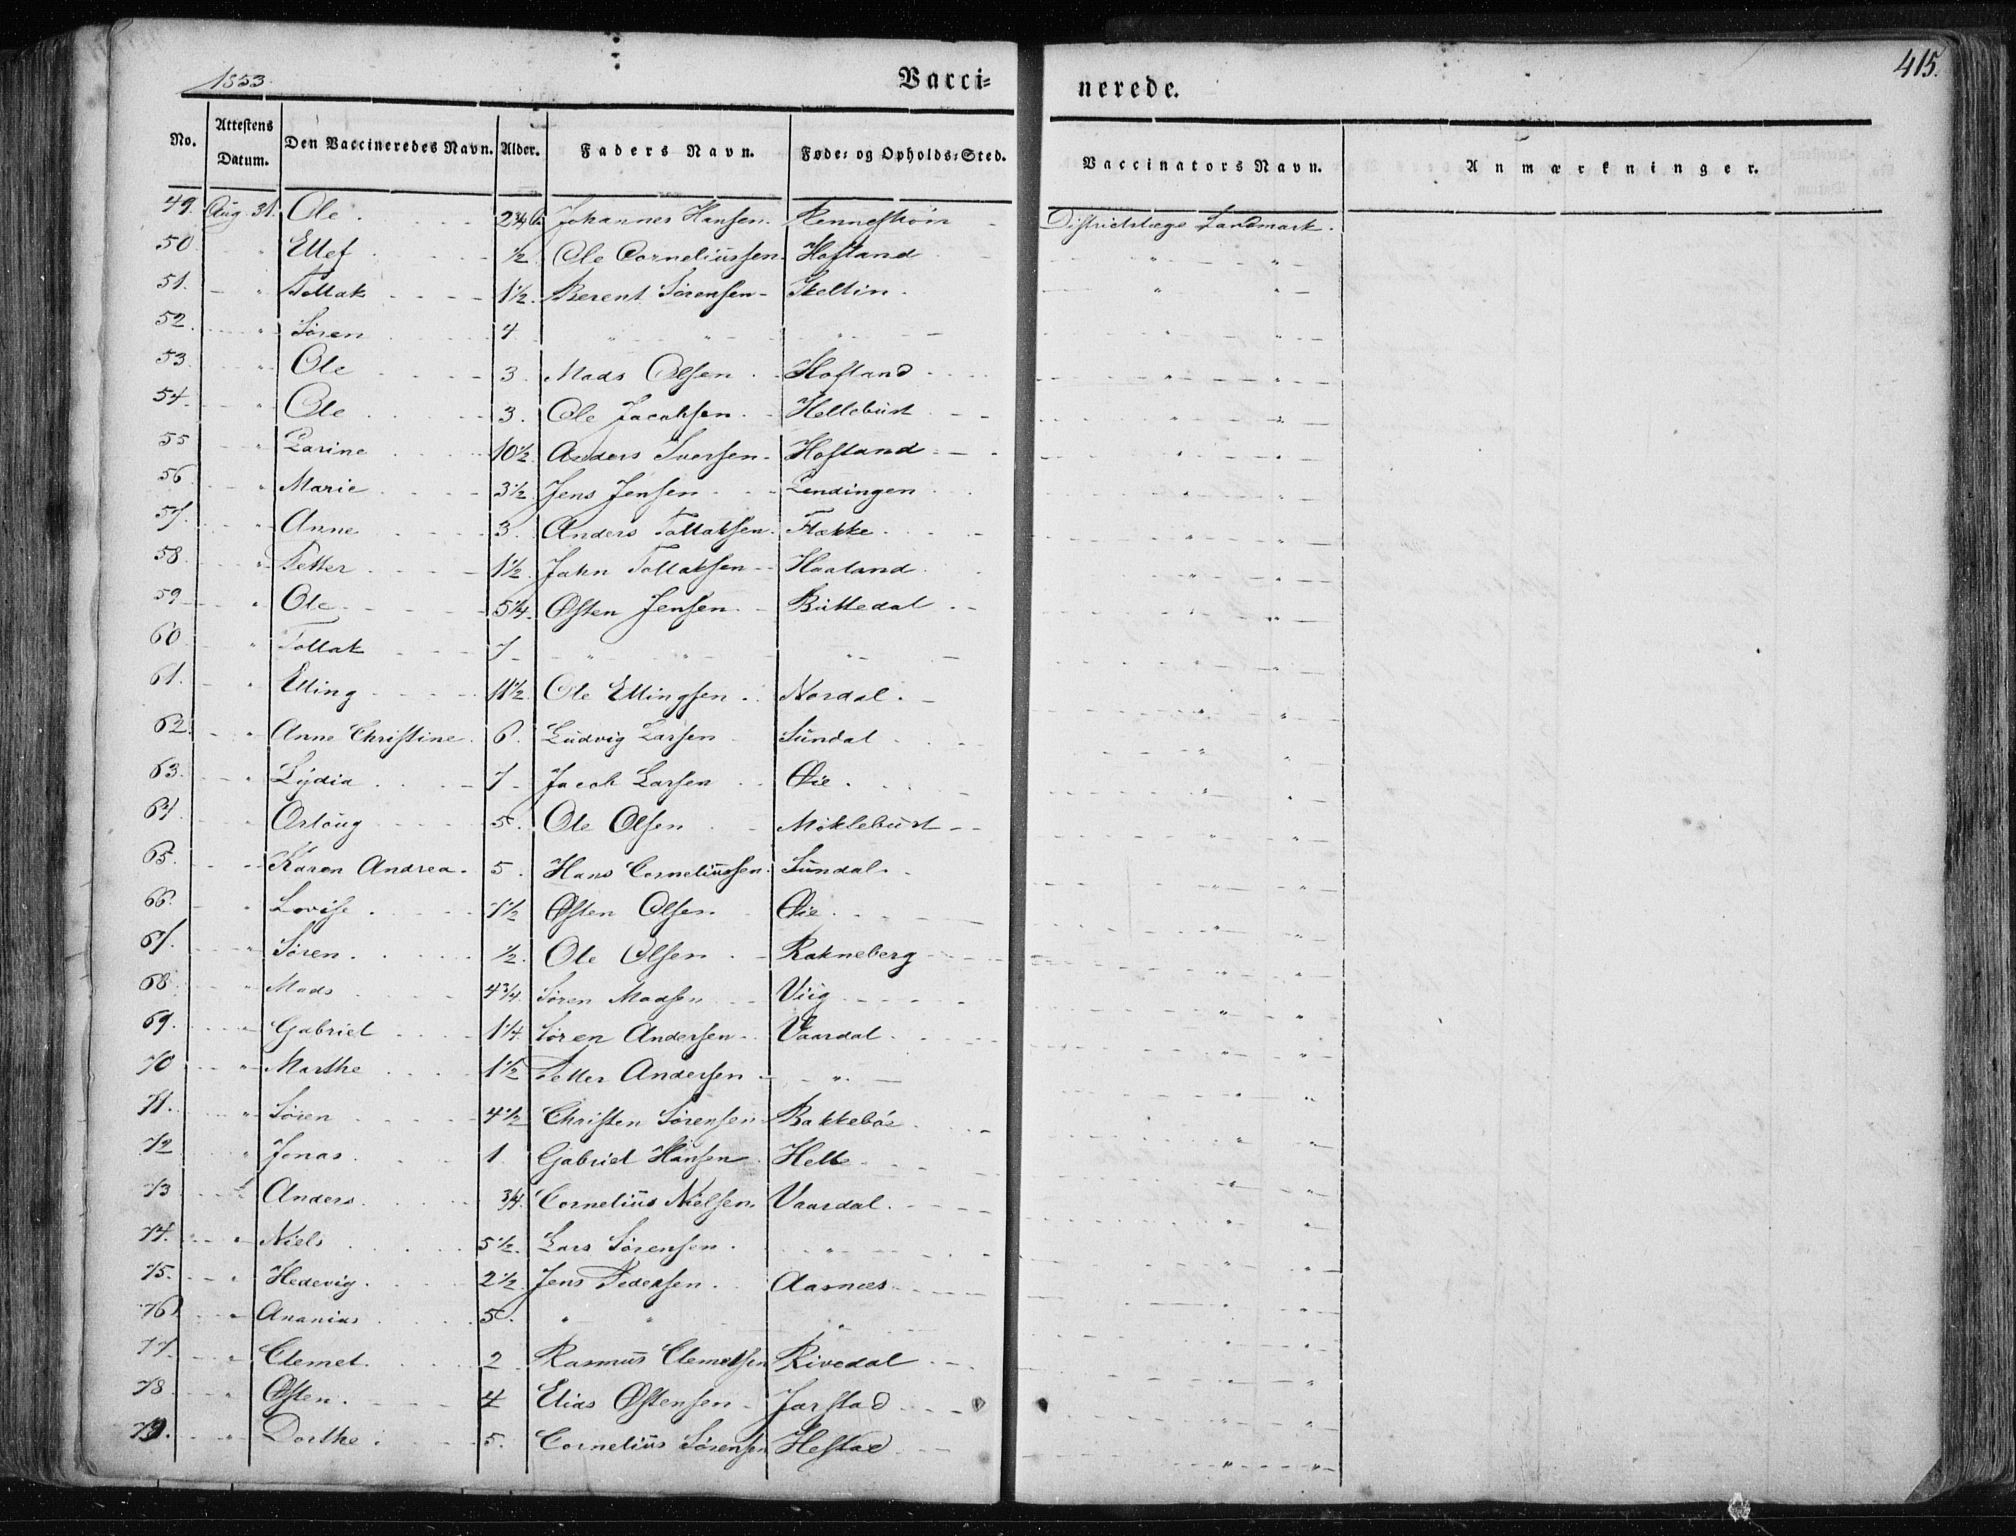 1853. Vacci= nerede. 415.
No. Attestens Datum. Den Vaccineredes Navn. Alder. Faders Navn. Føde= og Opholds=Sted. Vaccinators Navn. Anmærkninger.
49. Aug. 31. Ole 2 Johannes Hansen. Districtslæge Landmark.
50 " Ellef ½ Ole Corneliussen Hofland " "
51. " Tollak 1½. Berent Sørensen Skeltin. " "
52. " Søren 4 " " " " "
53. " Ole 3. Mads Olsen Hofland " "
54. " Ole 3. Ole Jacobsen. Hellebust " "
55 " Larine 10½. Anders Iversen Hofland " "
56. " Marie 3½. Jens Jensen Lendingen " "
57. " Anne 3. Anders Tollaksen. Flekke " "
58. " Petter 1½. John Tollaksen Haaland " "
59 " Ole 5¼. Østen Jensen. Buttedal " "
60. " Tollak 7 " " " " "
61. " Elling 11½. Ole Ellingsen Nordal. " "
62. " Anne Christine. 6. Ludvig Larsen Sundal " "
63. " Lydia 7 Jacob Larsen Øie. " "
64. " Orloug 5. Ole Olsen Miklebust " "
65. " Karen Andrea. 5. Hans Corneliussen. Sundal. " "
66. " Lovise 7½ Østen Olsen. Øie. " "
67. " Søren. ½. Ole Olsen Rakneberg " "
68. " Mads 4¾. Søren Madsen Viig " "
69. " Gabriel 1¼. Søren Andersen Vaardal. " "
70 " Marthe 1½ Petter Andersen " " "
71. " Søren 4½ Christen Sørensen Bakkebøe " "
72 " Jonas. 1. Gabriel Hansen Helle " "
73 " Anders ¾. Cornelius Nielsen. Vaardal. " "
74. " Niels 5½. Lars Sørensen. " " "
75. " Hedevig. 2½. Jens Pedersen. Aasnæs. " "
76 " Ananias 5. " " " " "
77. " Clemet. 2. Rasmus Clemetsen Rivedal " "
78. " Østen. 4 Elias Østensen Jarstad " "
79. " Dorthe. 5. Cornelius Sørensen Hestad " "